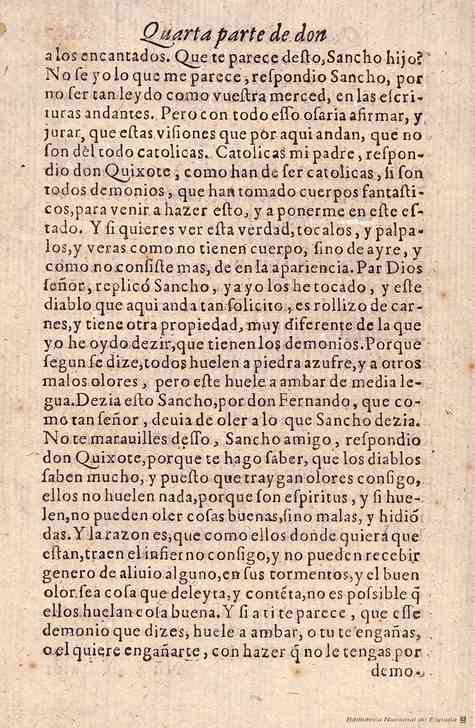 Quarta parte de don
a los encantados. Que te parece desto, Sancho hijo?
No se yo lo que me parece, respondio Sancho, por
no ser tan leydo como vuestra merced, en las escri-
turas andantes. Pero con todo esso osaria afirmar, y
jurar, que estas visiones que por aqui andan, que no
son del todo catolicas. Catolicas mi padre, respon-
dio don Quixote, como han de ser catolicas, si son
todos demonios, que han tomado cuerpos fantasti-
cos, para venir a hazer esto, y a ponerme en este es-
tado. Y si quieres ver esta verdad, tocalos, y palpa-
los, y veras como no tienen cuerpo, sino de ayre, y
como no consiste mas, de en la apariencia. Par Dios
señor, replicó Sancho, ya yo los he tocado, y este
diablo que aqui anda tan solicito, es rollizo de car-
nes, y tiene otra propiedad, muy diferente de la que
yo he oydo dezir, que tienen los demonios. Porque
segun se dize, todos huelen a piedra azufre, y a otros
malos olores, pero este huele a ambar de media le-
gua. Dezia esto Sancho, por don Fernando, que co-
mo tan señor, deuia de oler a lo que Sancho dezia.
No te marauilles desso, Sancho amigo, respondio
don Quixote, porque te hago saber, que los diablos
saben mucho, y puesto que traygan olores consigo,
ellos no huelen nada, porque son espiritus, y si hue-
len, no pueden oler cosas buenas, sino malas, y hidiõ
das. Y la razon es, que como ellos donde quiera que
estan, traen el infierno consigo, y no pueden recebir
genero de aliuio alguno, en sus tormentos, y el buen
olor sea cosa que deleyta, y contẽta, no es possible q̃
ellos huelan cosa buena. Y si a ti te parece, que esse
demonio que dizes, huele a ambar, o tu te engañas,
o el quiere engañarte, con hazer q̃ no le tengas por
demo-
Biblioteca Nacional de España